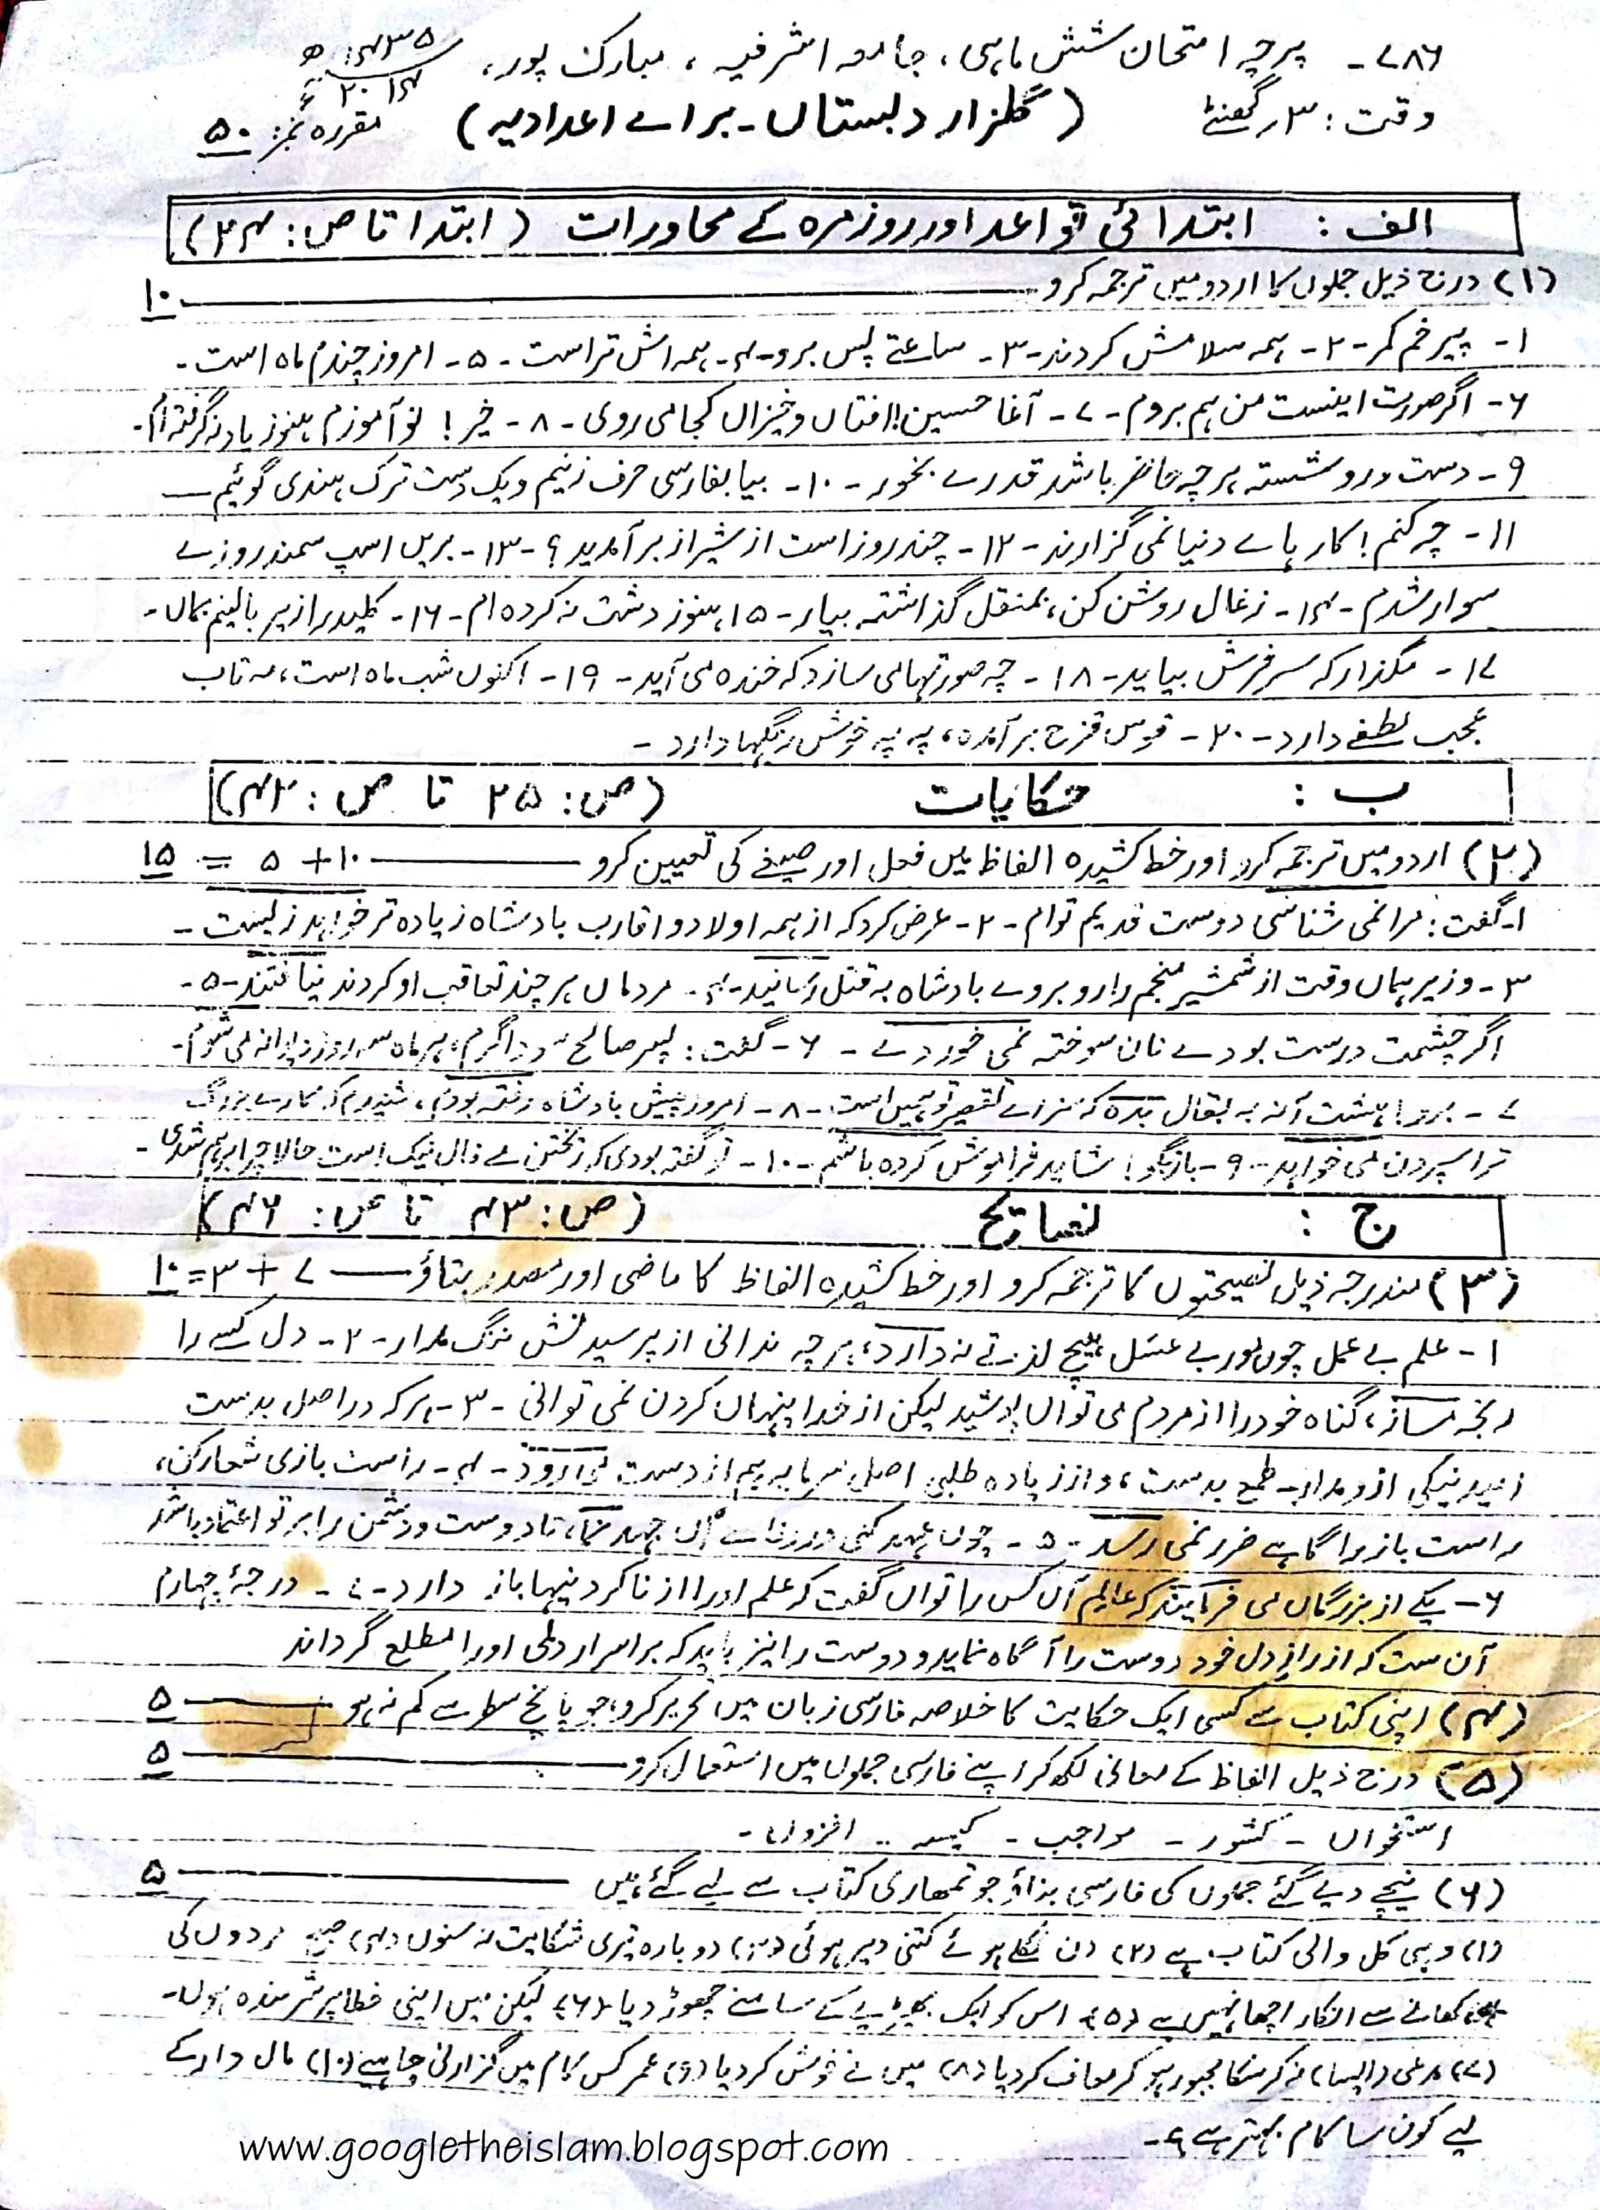 ۷۸۶ - پرچہ امتحان شش ماہی، جامعہ اشرفیہ، مبارک پور، ۱۴۳۵ھ ۲۰۱۴ء
وقت: ۳ر گھنٹے (گلزار دبستاں - برائے اعدادیہ) مقررہ نمبر: ۵۰
الف: ابتدائی قواعد اور روزمرہ کے محاورات (ابتدا تا ص: ۲۴)
(۱) درج ذیل جملوں کا اردو میں ترجمہ کرو ۱۰
۱- پیر خم کمر - ۲- ہمہ سلامش کردند - ۳- ساعتے پس برو - ۴- ہمہ اش تراست - ۵- امروز چندم ماہ است -
۶- اگر صورت اینست من ہم بروم - ۷- آغا حسین! افتاں و خیزاں کجا می روی - ۸- خیر! نو آموزم ہنوز یاد نہ گرفتہ ام -
۹- دست و رو شستہ ہر چہ حاضر باشد قدرے بخور - ۱۰- بیا بفارسی حرف زنیم و یک دست ترک ہندی گوئیم -
۱۱- چہ کنم! کار ہائے دنیا نمی گزارند - ۱۲- چند روز است از شیراز برآمدید؟ - ۱۳- بریں اسپ سمند روزے
سوار شدم - ۱۴- زغال روشن کن، بمنقل گذاشتہ بیار - ۱۵ ہنوز دشت نہ کردہ ام - ۱۶- کلید را زیر بالینم بماں -
۱۷- مگذار کہ سر فرش بیاید - ۱۸- چہ صورتہا می سازد کہ خندہ می آید - ۱۹- اکنوں شب ماہ است، مہ تاب
عجب لطفے دارد - ۲۰- قوس قزح برآمدہ، پہ پہ خوش رنگہا دارد -
ب: حکایات (ص: ۲۵ تا ص: ۴۲)
(۲) اردو میں ترجمہ کرو اور خط کشیدہ الفاظ میں فعل اور صیغے کی تعیین کرو ۱۰ + ۵ = ۱۵
۱- گفت: مرا نمی شناسی دوست قدیم توام - ۲- عرض کرد کہ از ہمہ اولاد و اقارب بادشاہ زیادہ تر خواہد زیست -
۳- وزیر ہماں وقت از شمشیر منجم را رو بروے بادشاہ بہ قتل رسانید - ۴- مردماں ہر چند تعاقب او کردند نیافتند - ۵-
اگر چشمت درست بودے نان سوختہ نمی خوردے - ۶- گفت: پسر صالح سوداگرم، ہر ماہ سہ روز دیوانہ می شوم -
۷- برو! ہشت آنہ بہ بقال بدہ کہ سزاے تقصیر تو ہمیں است - ۸- امروز پیش بادشاہ رفتہ بودم، شنیدم کہ کارے بزرگ
ترا سپردن می خواہد - ۹- بازگو! شاید فراموش کردہ باشم - ۱۰- تو گفتہ بودی کہ ریختن مے فال نیک است حالا چرا برہم شدی -
ج: نصائح (ص: ۴۳ تا ص: ۴۶)
(۳) مندرجہ ذیل نصیحتوں کا ترجمہ کرو اور خط کشیدہ الفاظ کا ماضی اور مصدر بتاؤ ۷ + ۳ = ۱۰
۱- علم بے عمل چوں موم بے عسل ہیچ لذتے نہ دارد، ہر چہ ندانی از پرسیدنش ننگ مدار - ۲- دل کسے را
رنجہ مساز، گناہ خود را از مردم می تواں پوشید لیکن از خدا پنہاں کردن نمی توانی - ۳- ہر کہ در اصل بدست
امید نیکی ازو مدار - طمع بدست، و از زیادہ طلبی اصل سرمایہ ہم از دست می رود - ۴- راست بازی شعار کن،
راست باز را گاہے ضرر نمی رسد - ۵- چوں عہد کنی در وفاے آں جہد نما، تا دوست و دشمن را بر تو اعتماد باشد
۶- یکے از بزرگاں می فرمایند کہ عالم آں کس را تواں گفت کہ علم او را از ناکردنیہا باز دارد - ۷- درجۂ چہارم
آن ست کہ از راز دل خود دوست را آگاہ نماید و دوست را نیز باید کہ بر اسرار دلی او را مطلع گرداند
(۴) اپنی کتاب سے کسی ایک حکایت کا خلاصہ فارسی زبان میں تحریر کرو، جو پانچ سطر سے کم نہ ہو ۵
(۵) درج ذیل الفاظ کے معانی لکھ کر اپنے فارسی جملوں میں استعمال کرو ۵
استخواں - کشور - مواجب - کیسہ -
(۶) نیچے دیے گئے جملوں کی فارسی بناؤ جو تمھاری کتاب سے لیے گئے ہیں ۵
(۱) وہی کل والی کتاب ہے (۲) دن نکلے ہوئے کتنی دیر ہوئی (۳) دوبارہ تیری شکایت نہ سنوں (۴) مردوں کی
کھانے سے انکار اچھا نہیں ہے (۵) اس کو ایک بھیڑیے کے سامنے چھوڑ دیا (۶) لیکن میں اپنی خطا پر شرمندہ ہوں -
(۷) مدعی (ایسا) نہ کر سکا مجبور ہو کر معاف کر دیا (۸) میں نے خوش کر دیا (۹) عمر کس کام میں گزارنی چاہیے (۱۰) مال دار کے
لیے کون سا کام بہتر ہے؟ -
www.googletheislam.blogspot.com